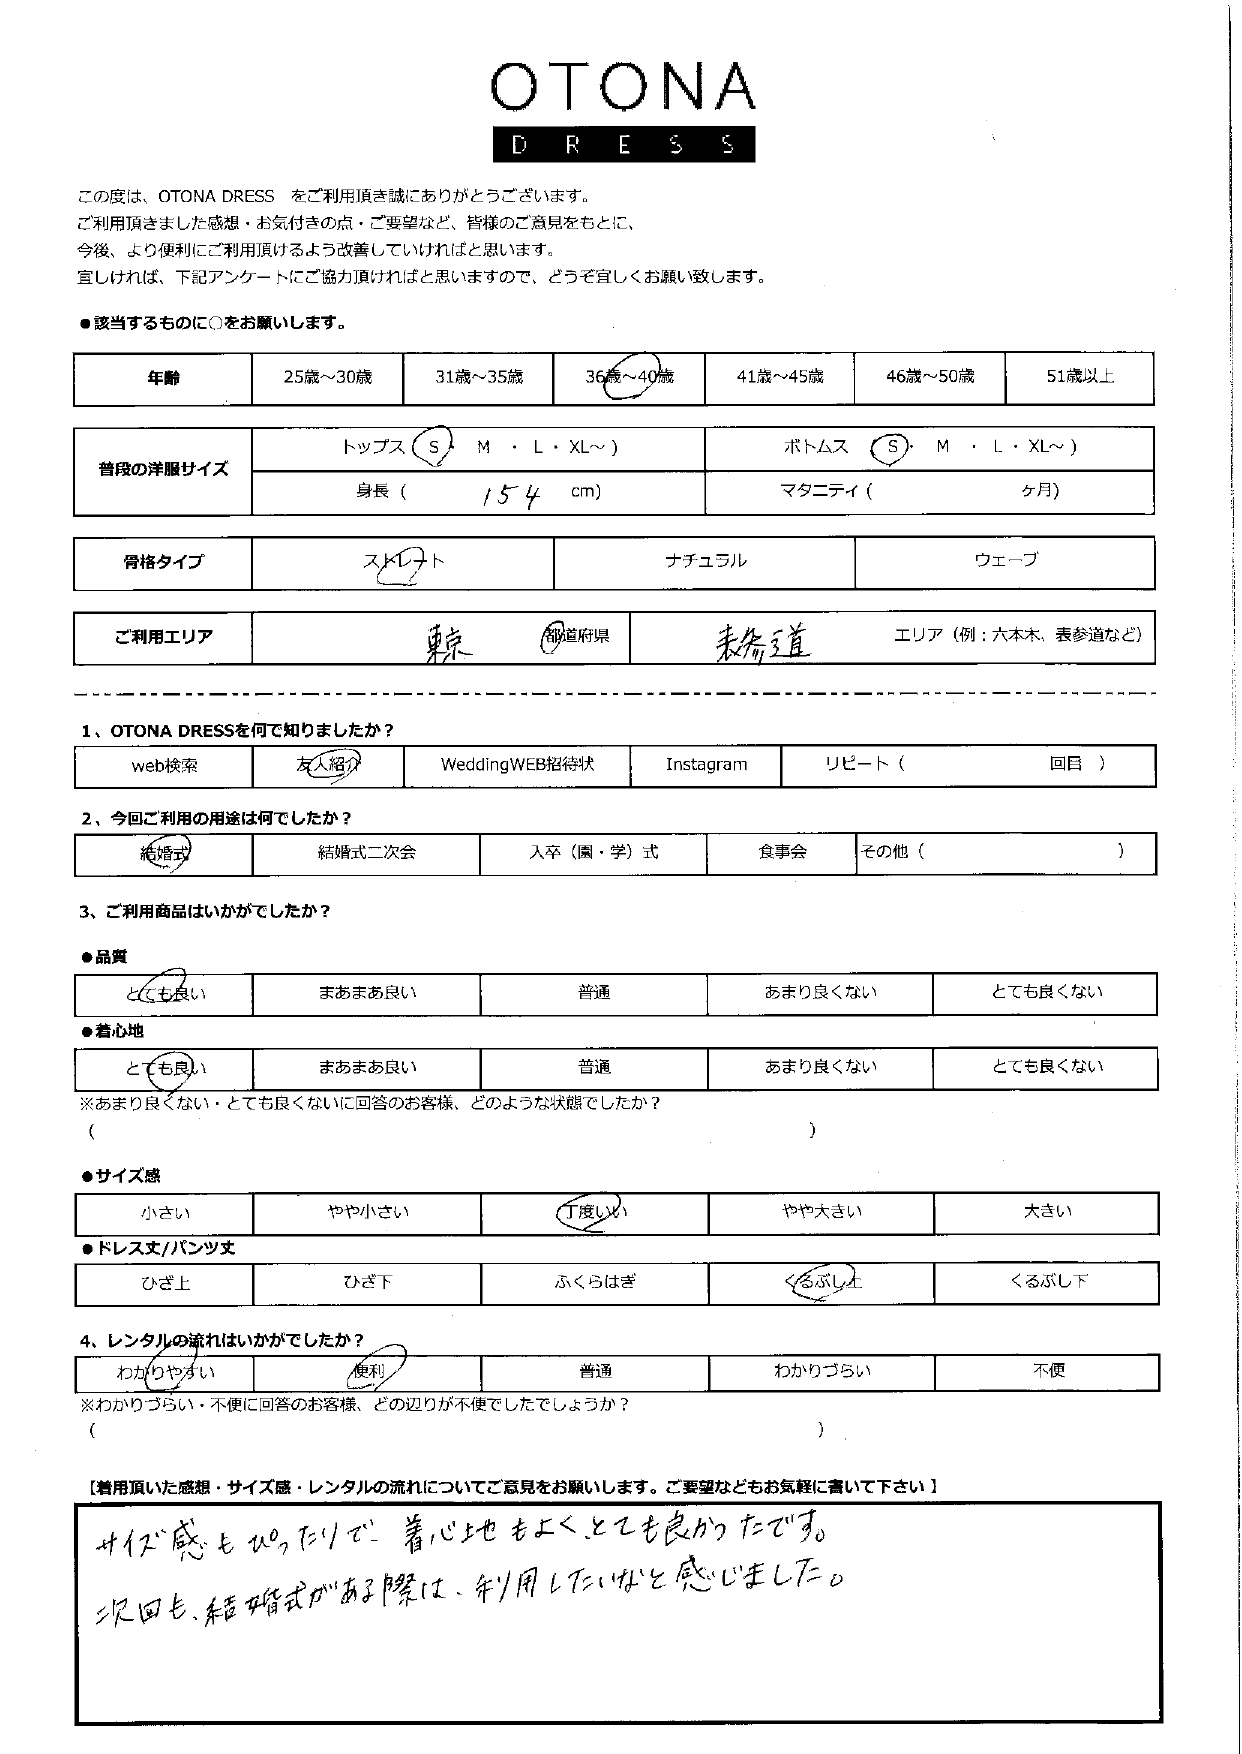 OTONA
DRESS
この度は、OTONA DRESS　をご利用頂き誠にありがとうございます。
ご利用頂きました感想・お気付きの点・ご要望など、皆様のご意見をもとに、
今後、より便利にご利用頂けるよう改善していければと思います。
宜しければ、下記アンケートにご協力頂ければと思いますので、どうぞ宜しくお願い致します。
●該当するものに○をお願いします。
年齢 25歳～30歳 31歳～35歳 36歳～40歳 41歳～45歳 46歳～50歳 51歳以上
普段の洋服サイズ トップス( S ・ M ・ L ・ XL～ ) ボトムス ( S ・ M ・ L ・ XL～ )
身長 ( 154 cm) マタニティ ( ケ月)
骨格タイプ ストレート ナチュラル ウェーブ
ご利用エリア 東京 都道府県 表参道 エリア（例：六本木、表参道など）
1、OTONA DRESSを何で知りましたか？
web検索 友人紹介 WeddingWEB招待状 Instagram リピート（ 回目 ）
2、今回ご利用の用途は何でしたか？
結婚式 結婚式二次会 入卒（園・学）式 食事会 その他（ ）
3、ご利用商品はいかがでしたか？
●品質
とても良い まあまあ良い 普通 あまり良くない とても良くない
●着心地
とても良い まあまあ良い 普通 あまり良くない とても良くない
※あまり良くない・とても良くないに回答のお客様、どのような状態でしたか？
( )
●サイズ感
小さい やや小さい 丁度いい やや大きい 大きい
●ドレス丈/パンツ丈
ひざ上 ひざ下 ふくらはぎ くるぶし上 くるぶし下
4、レンタルの流れはいかがでしたか？
わかりやすい 便利 普通 わかりづらい 不便
※わかりづらい・不便に回答のお客様、どの辺りが不便でしたでしょうか？
( )
【着用頂いた感想・サイズ感・レンタルの流れについてご意見をお願いします。ご要望などもお気軽に書いて下さい】
サイズ感もぴったりで、着心地もよく、とても良かったです。
次回も、結婚式がある際は、利用したいなと感じました。